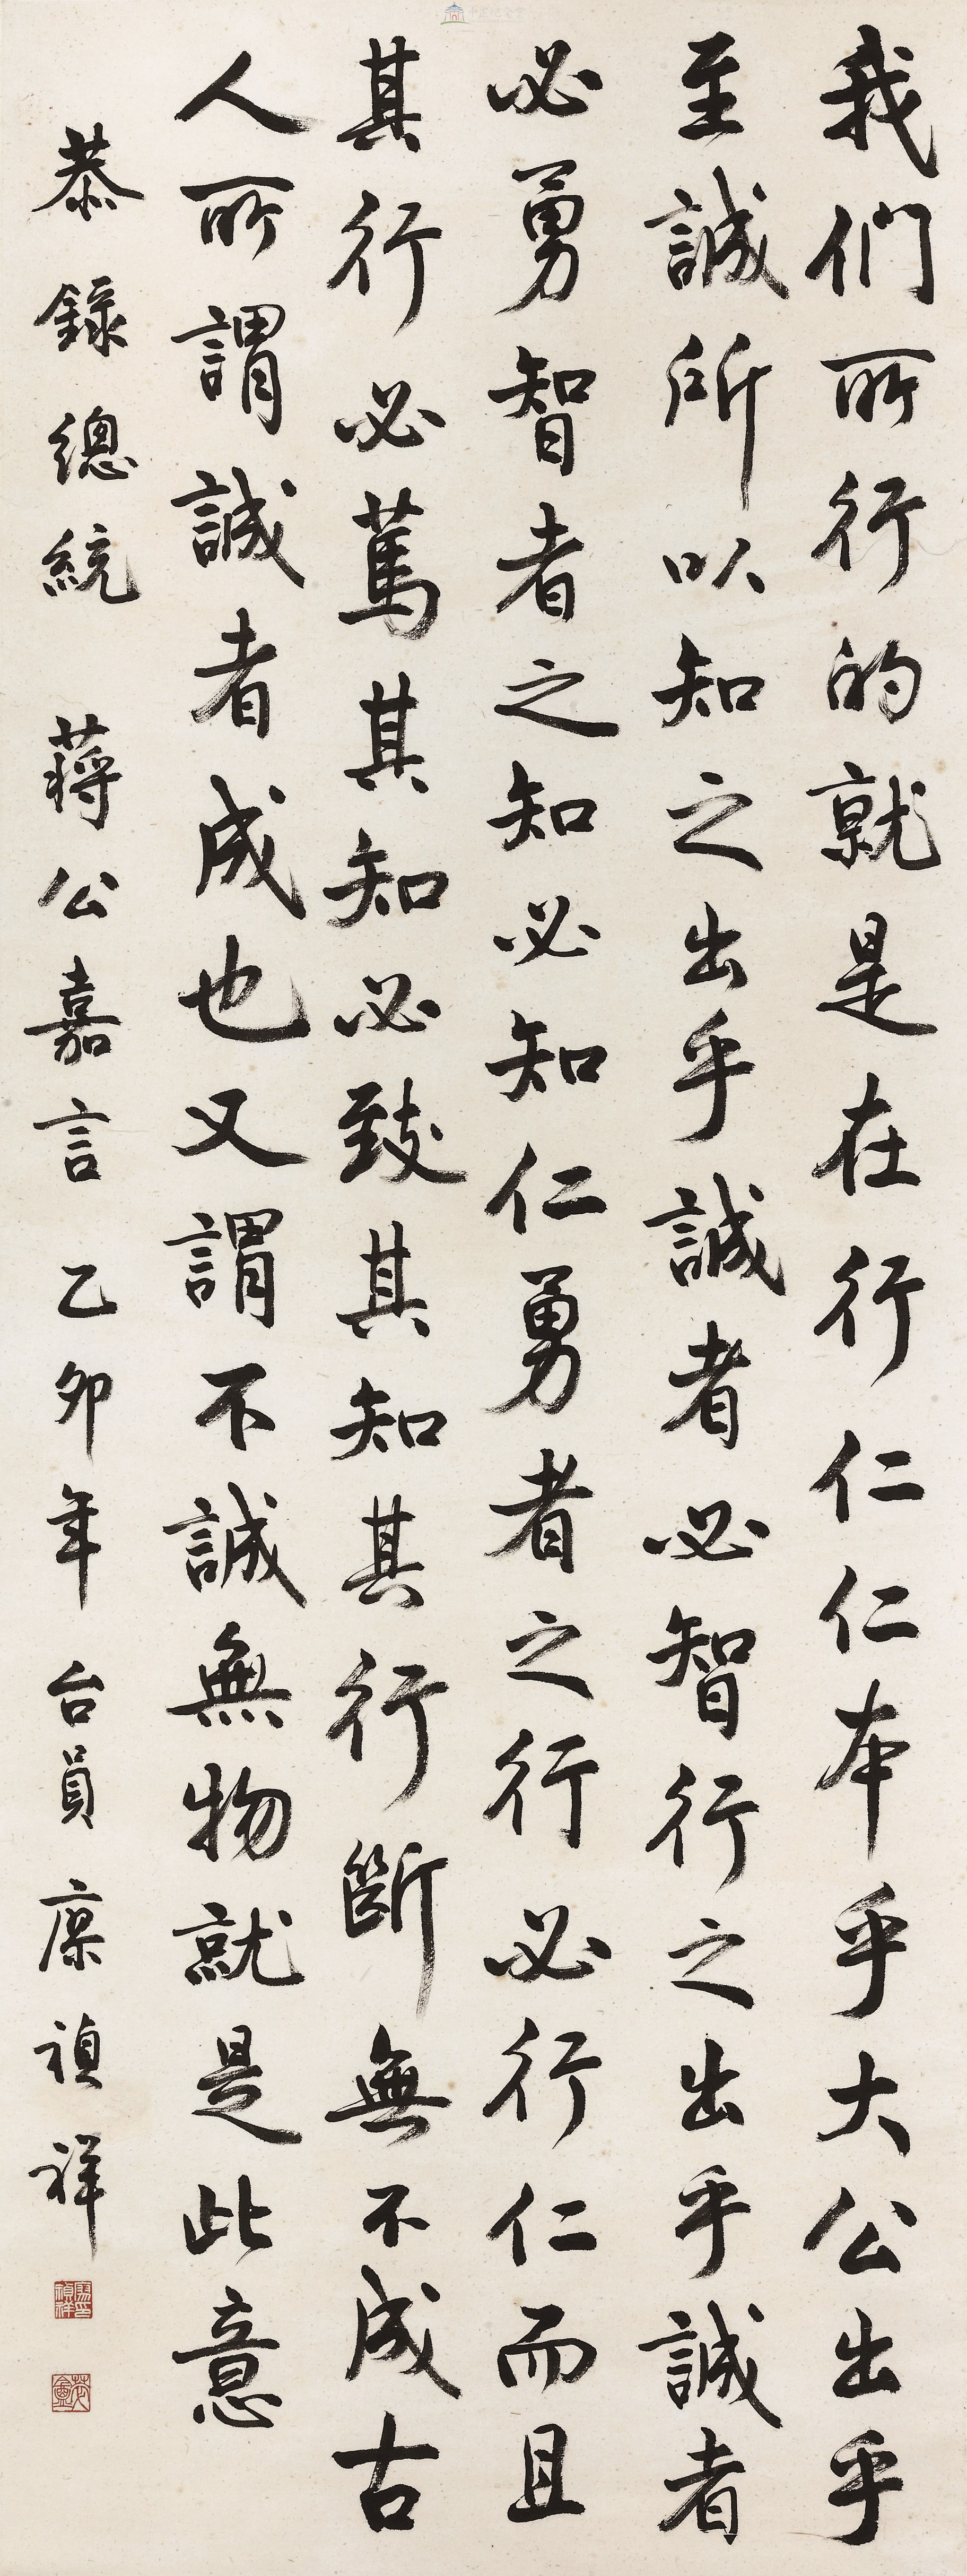 我們所行的就是在行仁仁本乎大公出乎
至誠所以知之出乎誠者必智行之出乎誠者
必勇智者之知必知仁勇者之行必行仁而且
其行必篤其知必致其知其行斷無不成古
人所謂誠者成也又謂不誠無物就是此意
恭錄總統 蔣公嘉言 乙卯年 台員 廖禎祥